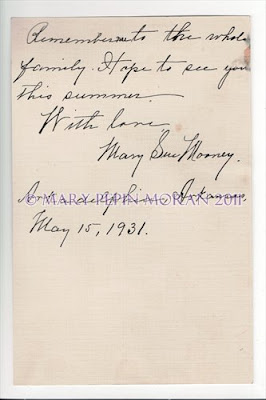 Remember me to the whole
family. Hope to see you
this summer.
With love,
Mary Sue Mooney.
Arkadelphia, Arkansas,
© MARY PIPIN MORAN 2011
May 15, 1931.